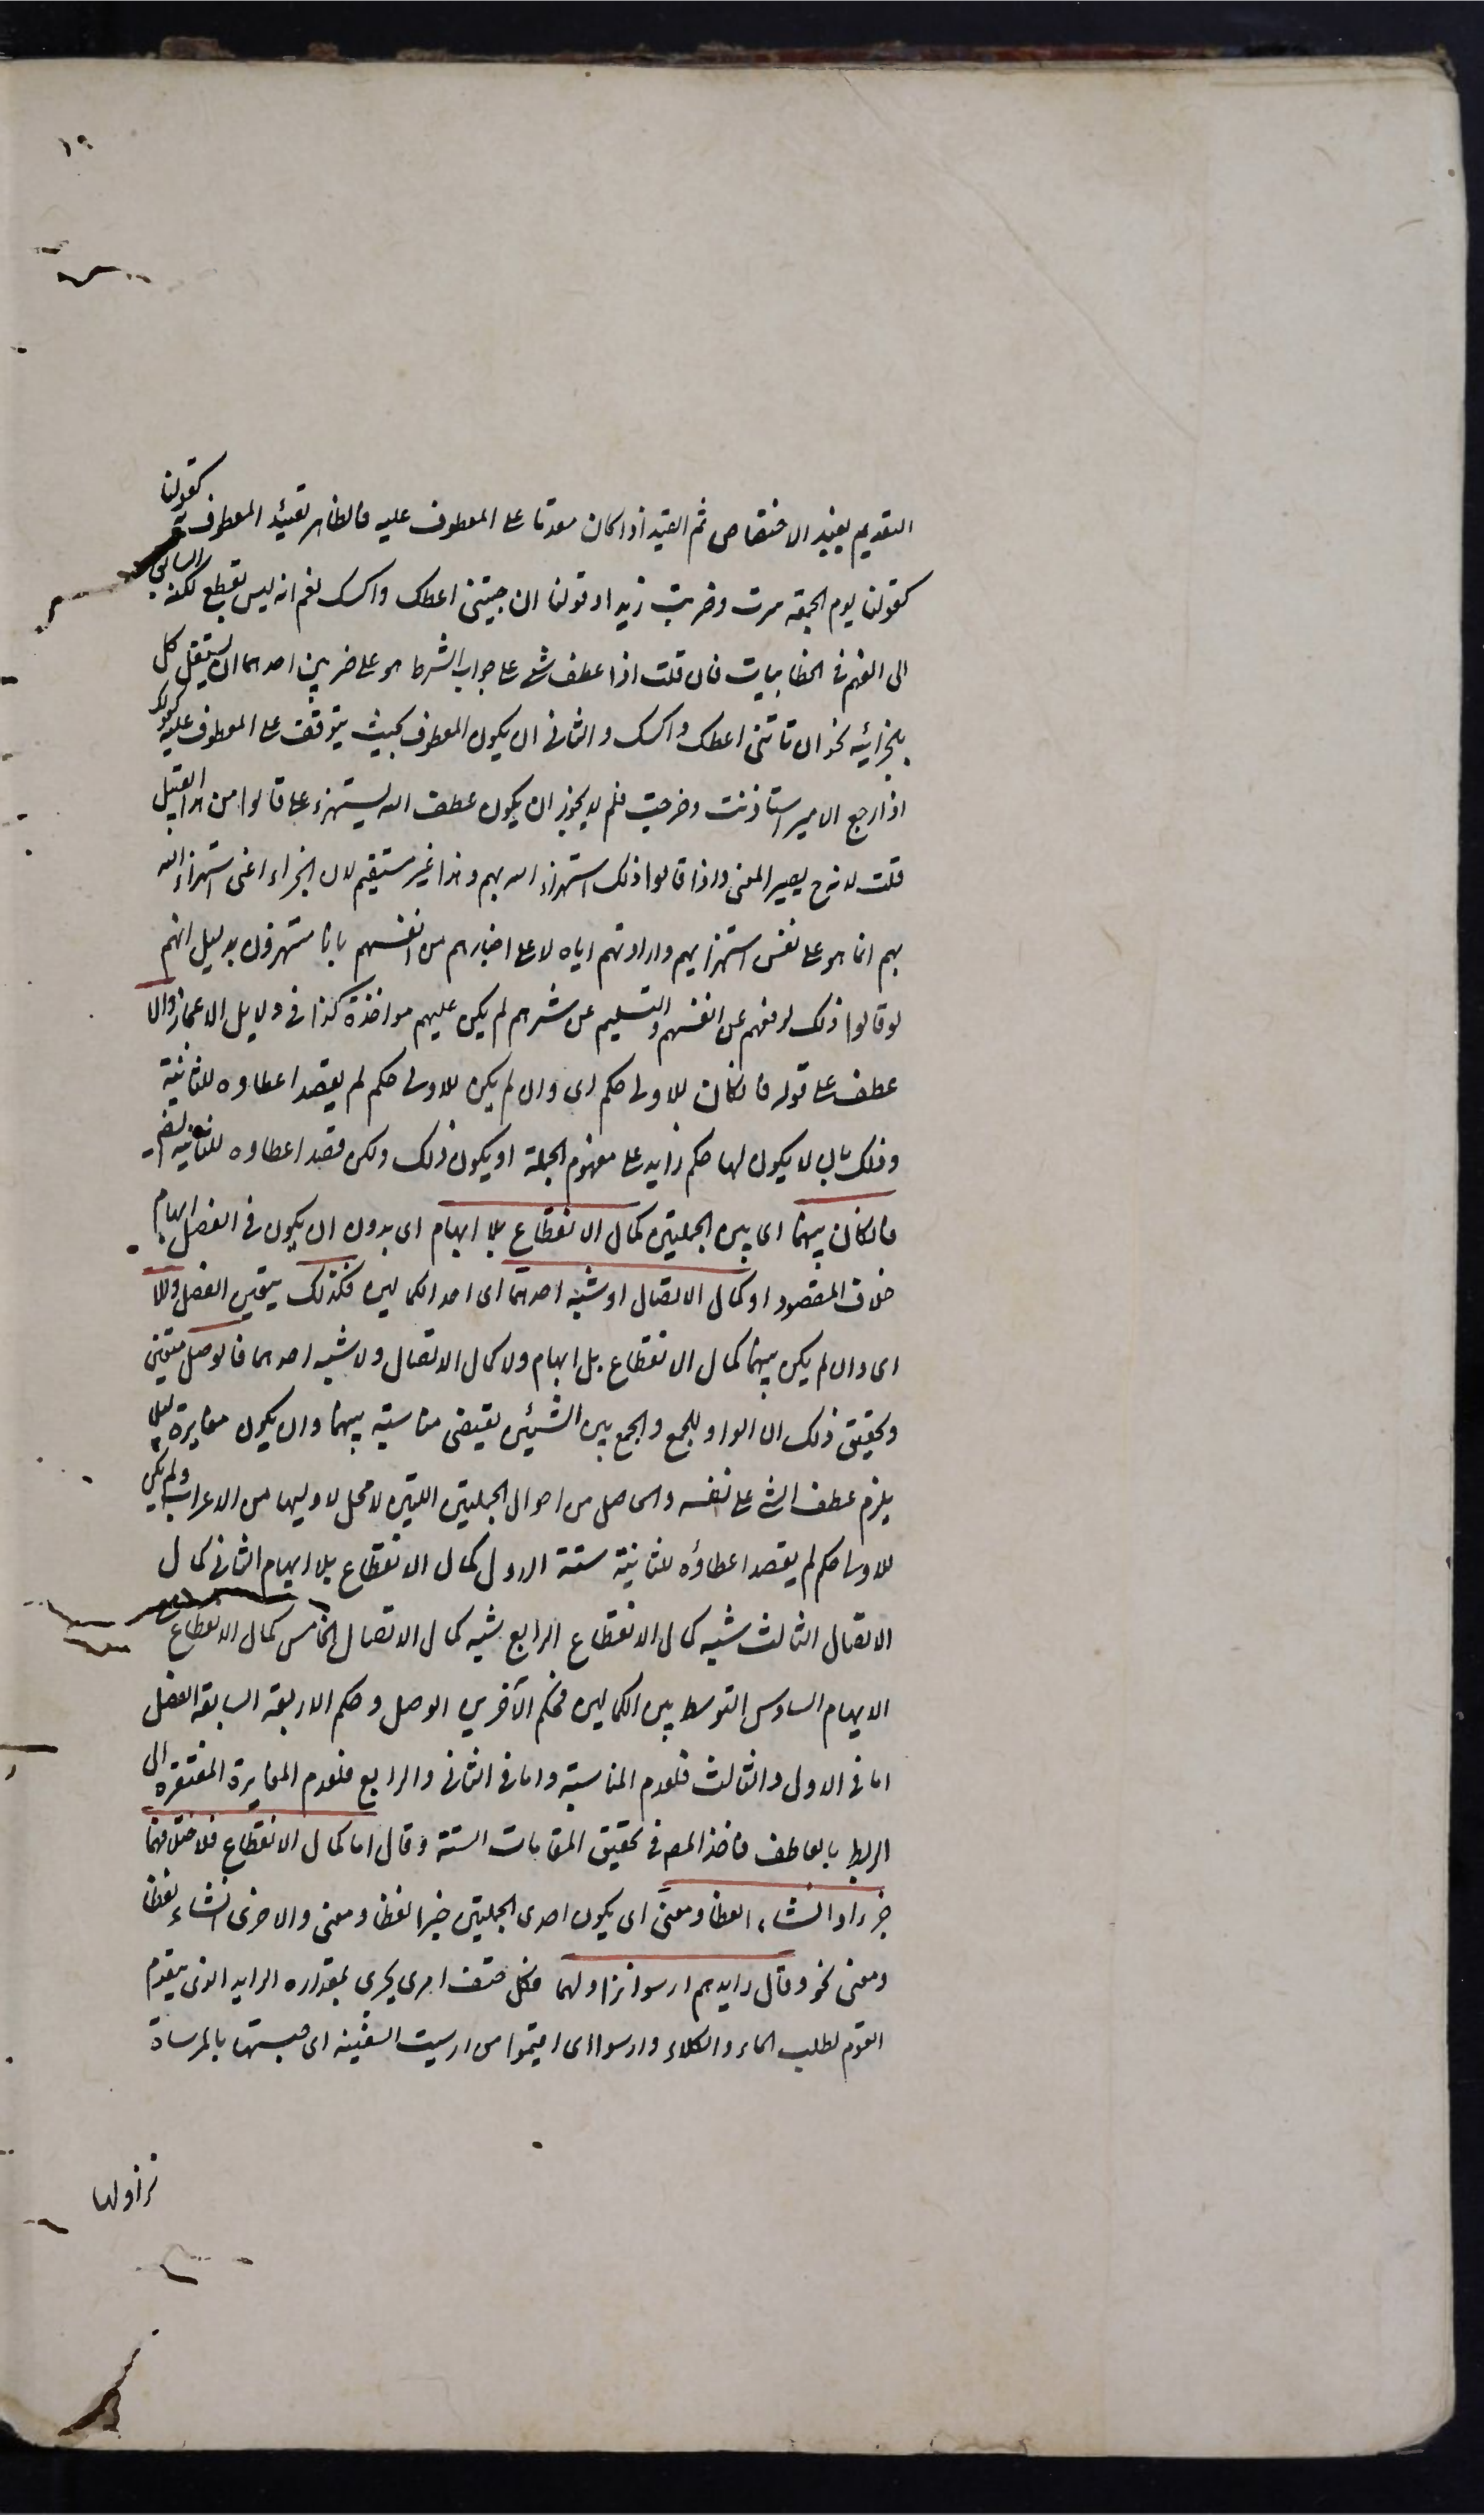 ١٩
التقديم يفيد الاختصاص ثم القيد اذا كان مقدما على المعطوف عليه فالظاهر تقييد المعطوف به كقولنا
كقولنا يوم الجمعة سرت وضربت زيدا وقولنا ان جيتنى اعطك واكسك نعم انه ليس بقطع لكنه السابق
الى الفهم فى الخطابيات فان قلت اذا عطف شى على جواب الشرط هو على ضربين احدهما ان يستقل كل
بالجزائيه نحو ان تاتنى اعطك واكسك والثانى ان يكون المعطوف بحيث يتوقف على المعطوف عليه كقولك
اذا رجع الامير استاذنت وخرجت فلم لا يجوز ان يكون عطف الله يستهزء على قالوا من هذا القبيل
قلت لانه ح يصير المعنى واذا قالوا ذلك استهزاء الله بهم وهذا غير مستقيم لان الجزاء اعنى استهزاء الله
بهم انما هو على نفس استهزايهم وارادتهم اياه لا على اخبارهم من انفسهم بانا مستهزؤن بدليل انهم
لو قالوا ذلك لدفعهم عن انفسهم والتسليم عن شرهم لم يكن عليهم مواخذة كذا فى دلايل الاعجاز والا
عطف على قوله فان كان للاولى حكم اى وان لم يكن للاولى حكم لم يقصد اعطاوه للثانية
وذلك بان لا يكون لها حكم زايد على مفهوم الجملة او يكون ذلك ولكن قصد اعطاوه للثانية ايضا
فان كان بينهما اى بين الجملتين كمال الانقطاع بلا ايهام اى بدون ان يكون فى الفصل ايهام
خلاف المقصود او كمال الاتصال او شبه احدهما اى احد الكمالين فكذلك يتعين الفصل والا
اى وان لم يكن بينهما كمال الانقطاع بلا ايهام ولا كمال الاتصال ولا شبه احدهما فالوصل متعين
وتحقيق ذلك ان الواو للجمع والجمع بين الشيئين يقتضى مناسبة بينهما وان يكون مغايرة ليلا
يلزم عطف الشى على نفسه والحاصل من احوال الجملتين اللتين لا محل لاوليهما من الاعراب ولم يكن
للاولى حكم لم يقصد اعطاؤه للثانية ستة الاول كمال الانقطاع بلا ايهام الثانى كمال
الاتصال الثالث شبه كمال الانقطاع الرابع شبه كمال الاتصال الخامس كمال الانقطاع مع
الايهام السادس التوسط بين الكمالين فحكم الآخرين الوصل وحكم الاربعة السابقة الفصل
اما فى الاول والثالث فلعدم المناسبة واما فى الثانى والرابع فلعدم المغايرة المفتقرة الى
الربط بالعاطف فاخذ المص فى تحقيق المقامات الستة وقال اما كمال الانقطاع فلاختلافهما
خبرا وانشاء لفظا ومعنى اى يكون احدى الجملتين خبرا لفظا ومعنى والاخرى انشاء لفظا
ومعنى نحو وقال رايدهم ارسوا نزاولها فكل حتف امرى يجرى بمقداره الرايد الذى يتقدم
القوم لطلب الماء والكلاء وارسوا اى اقيموا من ارسيت السفينه اى حبستها بالمرساة
نزاولها